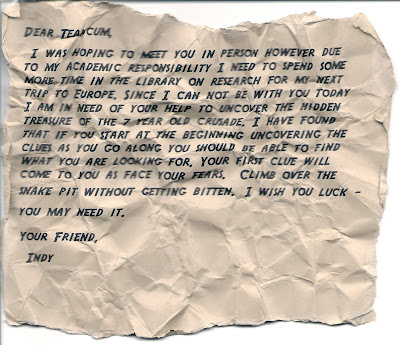 DEAR TEANCUM,
I WAS HOPING TO MEET YOU IN PERSON HOWEVER DUE
TO MY ACADEMIC RESPONSIBILITY I NEED TO SPEND SOME
MORE TIME IN THE LIBRARY ON RESEARCH FOR MY NEXT
TRIP TO EUROPE. SINCE I CAN NOT BE WITH YOU TODAY
I AM IN NEED OF YOUR HELP TO UNCOVER THE HIDDEN
TREASURE OF THE 7 YEAR OLD CRUSADE. I HAVE FOUND
THAT IF YOU START AT THE BEGINNING UNCOVERING THE
CLUES AS YOU GO ALONG YOU SHOULD BE ABLE TO FIND
WHAT YOU ARE LOOKING FOR. YOUR FIRST CLUE WILL
COME TO YOU AS FACE YOUR FEARS. CLIMB OVER THE
SNAKE PIT WITHOUT GETTING BITTEN. I WISH YOU LUCK -
YOU MAY NEED IT.
YOUR FRIEND,
INDY